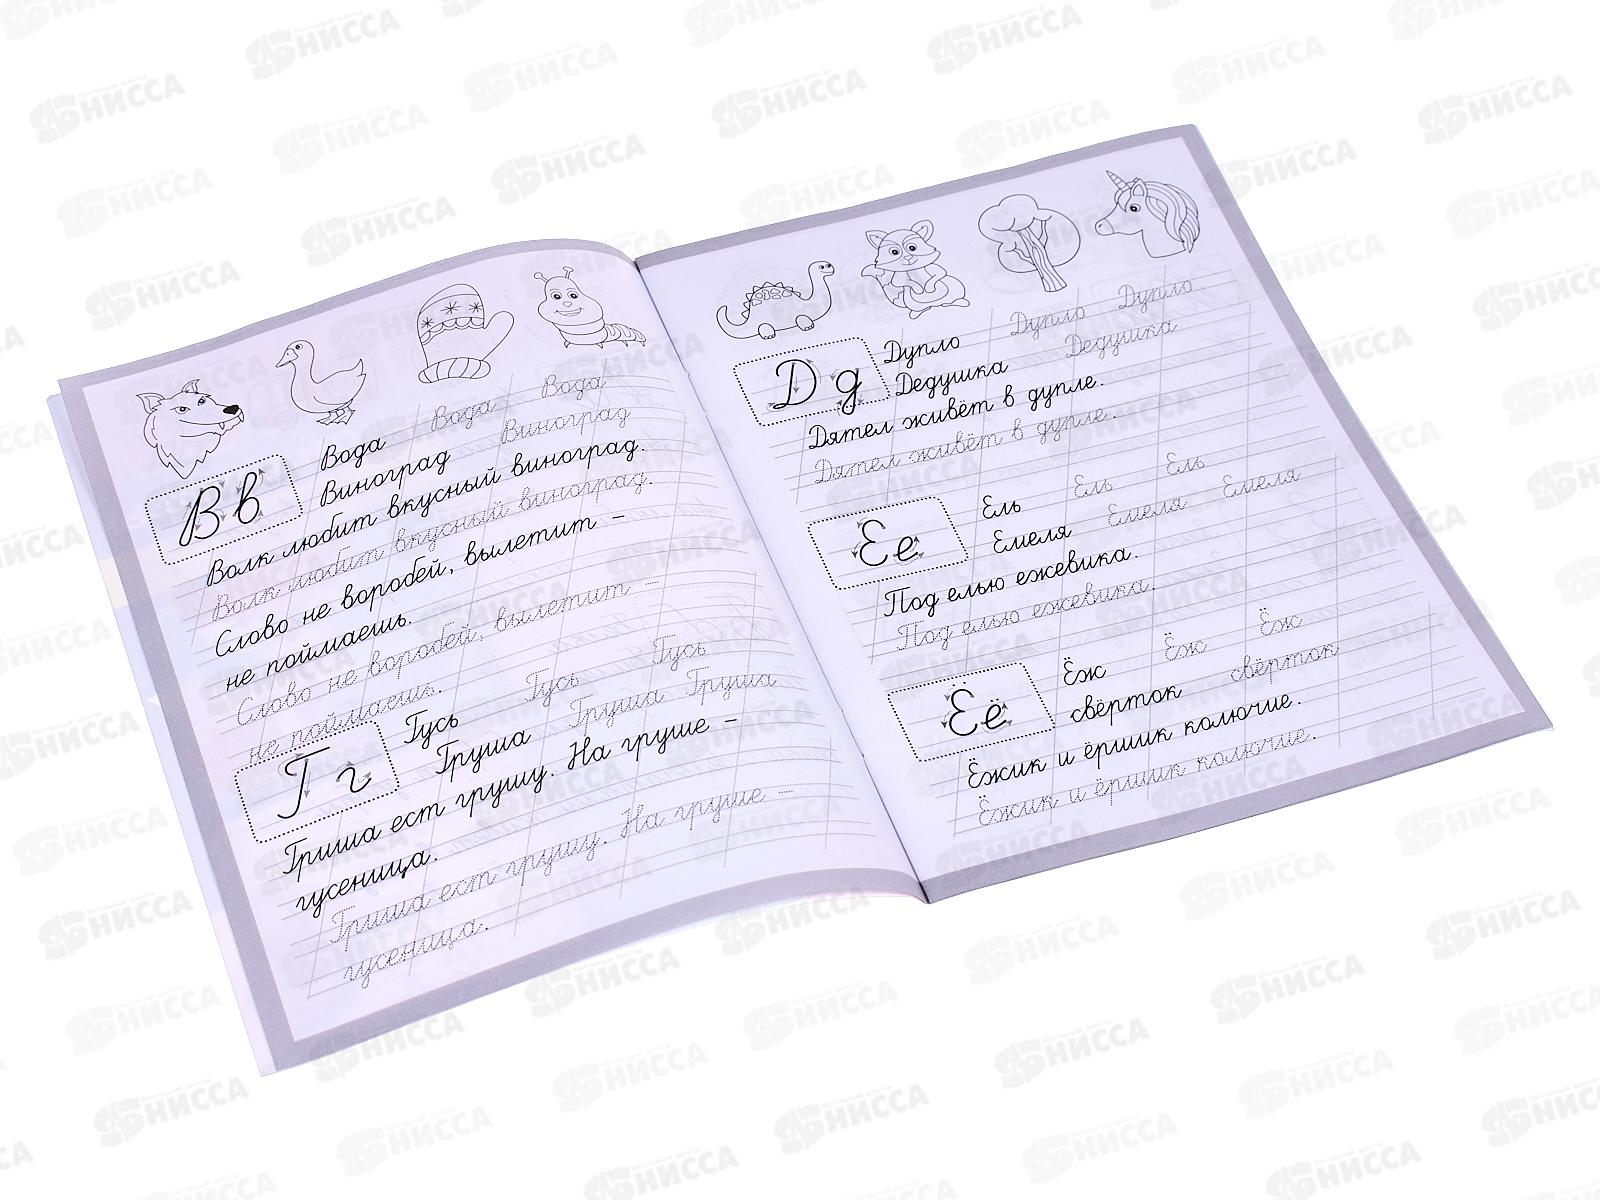 Вв
Вода Вода Вода
Виноград Виноград
Волк любит вкусный виноград.
Волк любит вкусный виноград.
Слово не воробей, вылетит –
не поймаешь.
Слово не воробей, вылетит –
не поймаешь.
Гг
Гусь Гусь Гусь
Груша Груша Груша
Гриша ест грушу. На груше –
гусеница.
Гриша ест грушу. На груше –
гусеница.
Дд
Дупло Дупло Дупло
Дедушка Дедушка
Дятел живёт в дупле.
Дятел живёт в дупле.
Ее
Ель Ель Ель
Емеля Емеля Емеля
Под елью ежевика.
Под елью ежевика.
Ёё
Ёж Ёж Ёж
свёрток свёрток
Ёжик и ёршик колючие.
Ёжик и ёршик колючие.
НИССА